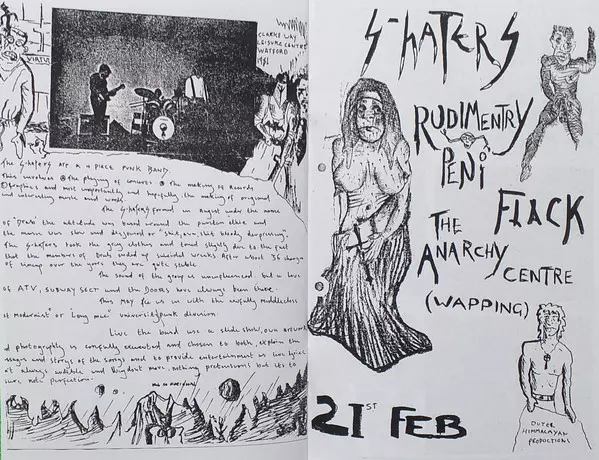 VIRTUE
CLARKE WAY
LEISURE CENTRE
WATFORD
1981
The S-haters are a 4 piece PUNK BAND.
This involves the playing of concerts the making of Records
Graphics and most importantly and hopefully, the making of original
and interesting music and words.
The S-haters formed in August under the name
of "Drats" the attitude was based around the puritan ethic and
the music was slow and disjointed or
The S-haters took the grey clothes and toned slightly due to the fact
that the members of Drats ended up suicidal wrecks. After about 36 changes
of lineup over the years they are quite stable.
The sound of the group is uninfluenced but a love
of ATV, SUBWAY SECT and the DOORS has always been there.
This may tie us in with the awfully middleclass
or Modernist" or "Long mac" university punk division.
Live the band use a slide show, own artwork
& photography is carefully executed and chosen to both, explain the
images and storys of the songs and to provide entertainment as live lyrics
not always audible and
are not perfection.
S-HATERS
RUDIMENTRY
PENI
FLACK
THE
ANARCHY
CENTRE
(WAPPING)
21ST FEB
OUTER
HIMMALAYAN
PRODUCTIONS